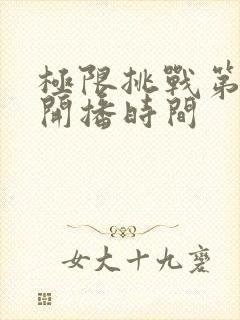 極限挑戰第
開播時間
女大十九變